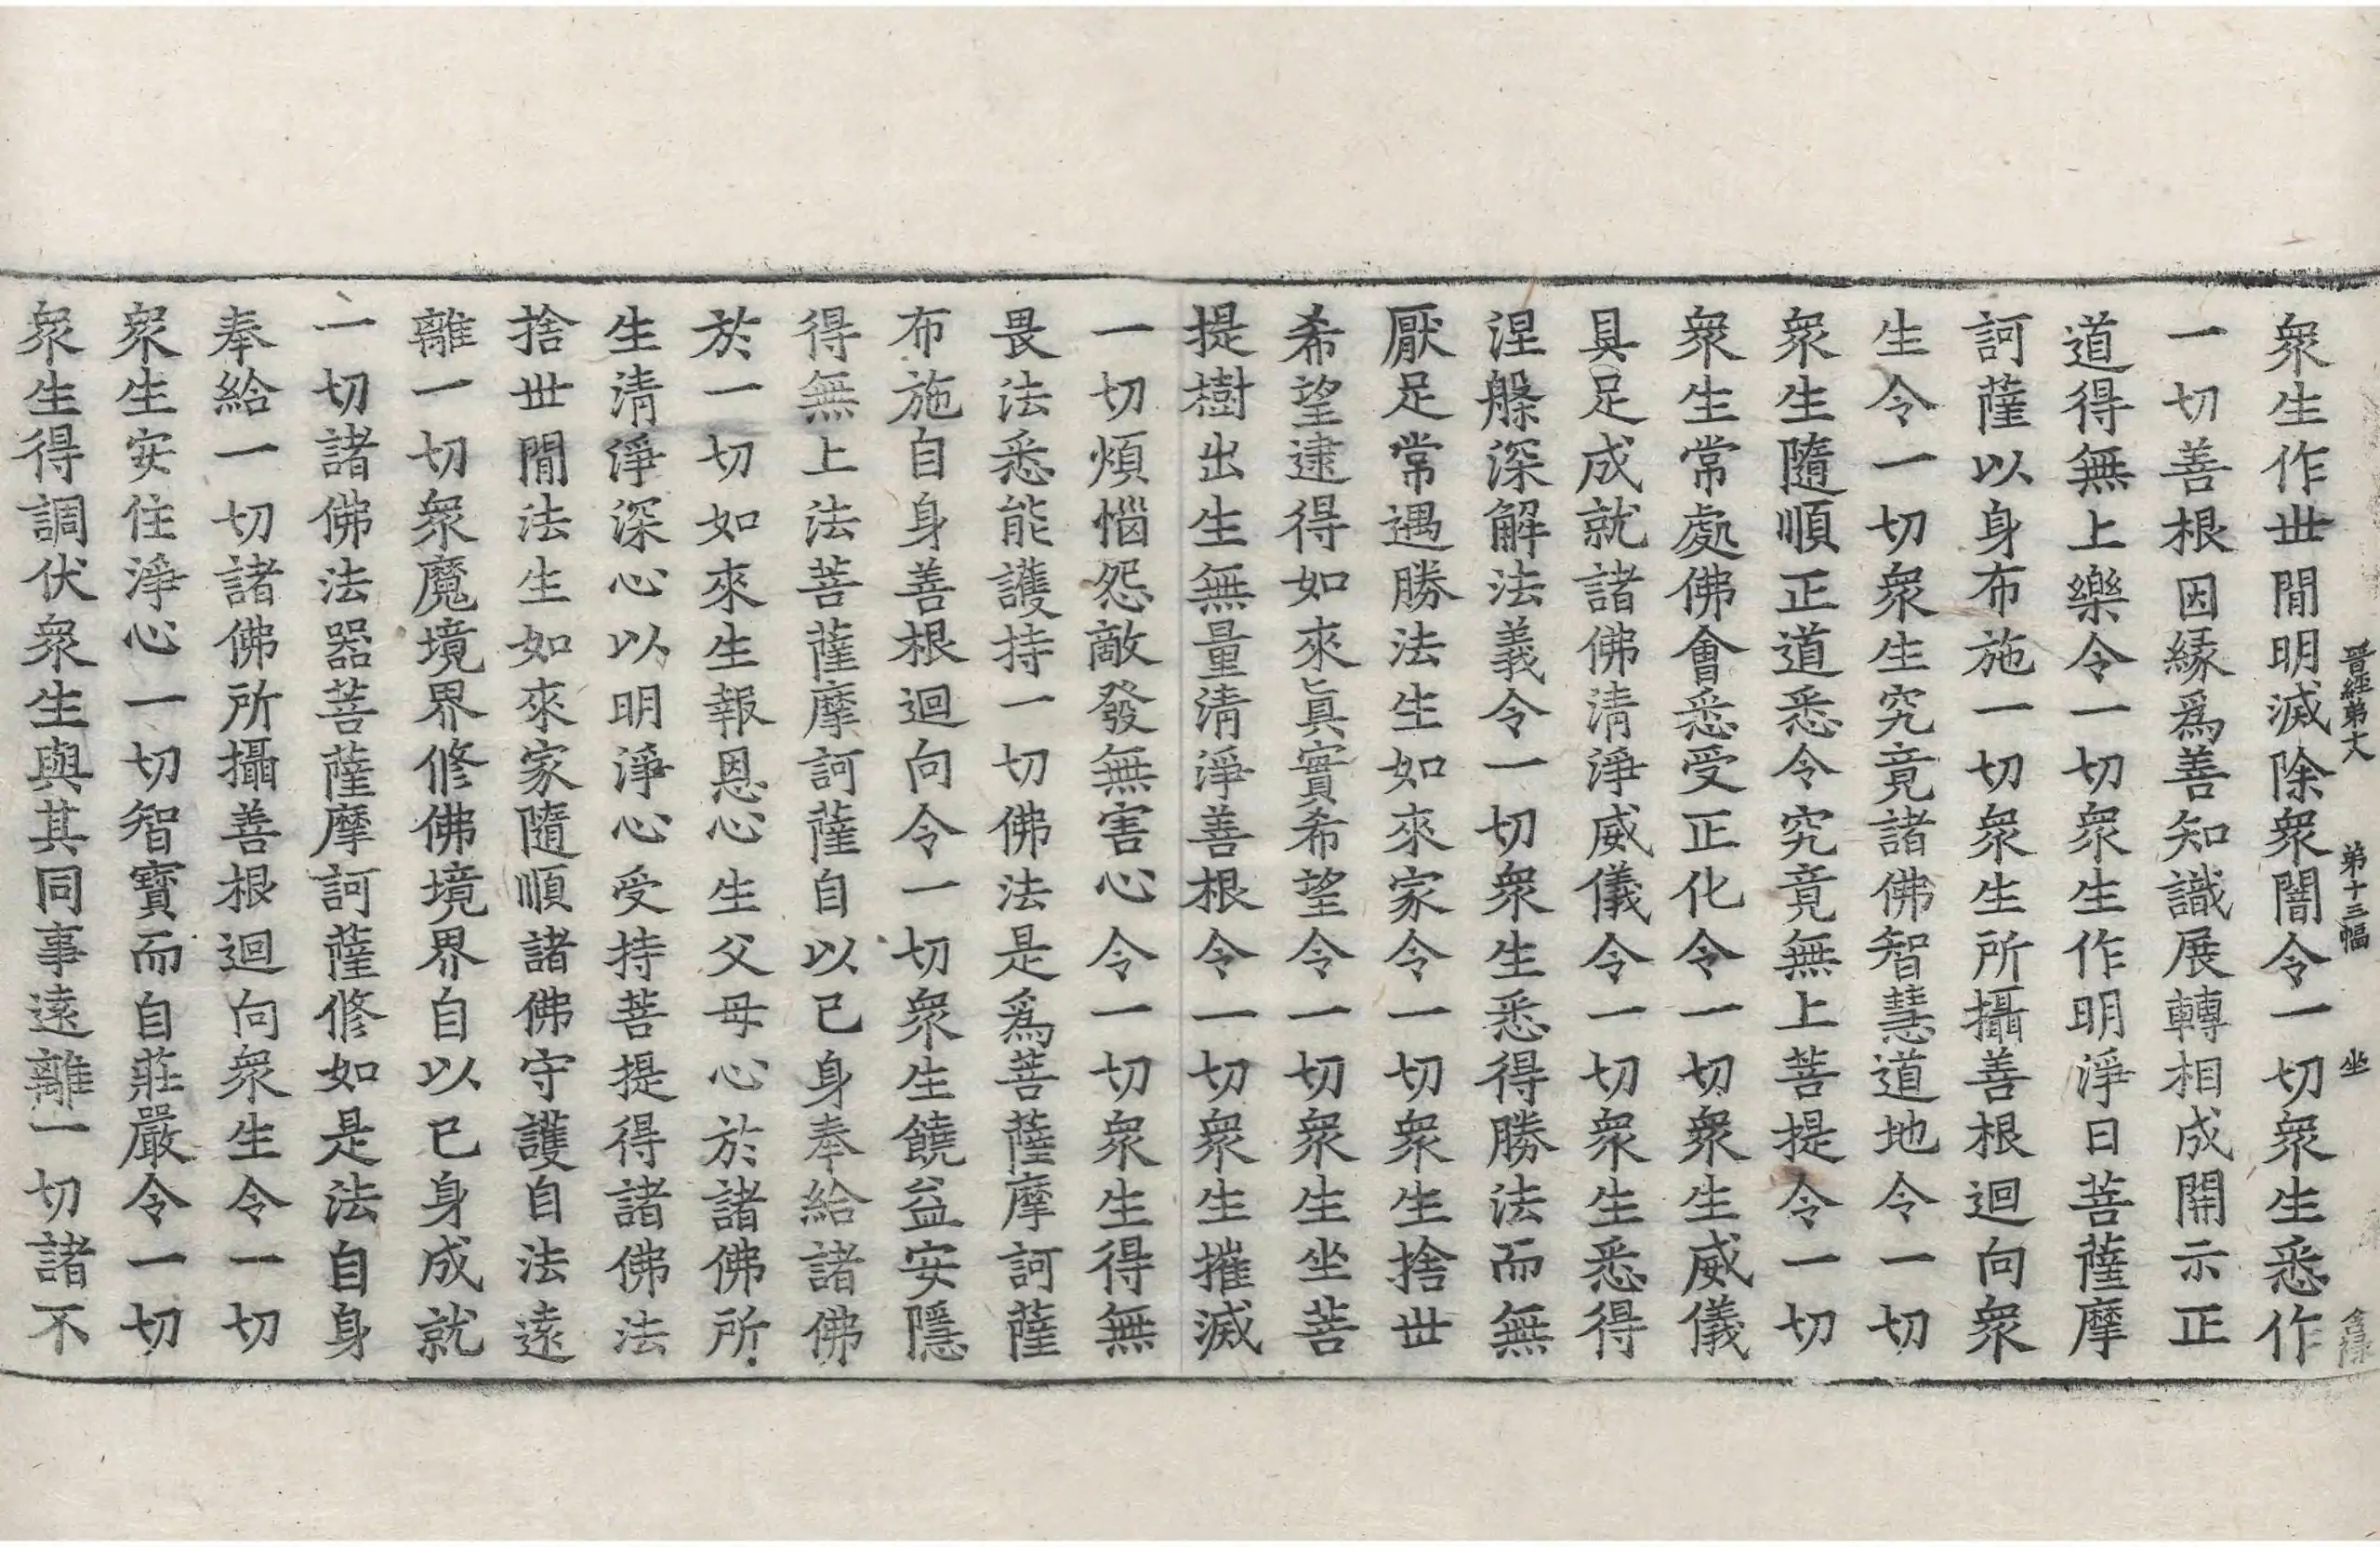 晉經第十六　第十三幅　坐
衆生作世閒明滅除衆闇令一切衆生悉作
一切善根因緣爲善知識展轉相成開示正
道得無上樂令一切衆生作明淨日菩薩摩
訶薩以身布施一切衆生所攝善根迴向衆
生令一切衆生究竟諸佛智慧道地令一切
衆生隨順正道悉令究竟無上菩提令一切
衆生常處佛會悉受正化令一切衆生威儀
具足成就諸佛清淨威儀令一切衆生悉得
涅槃深解法義令一切衆生悉得勝法而無
厭足常遇勝法生如來家令一切衆生捨世
希望逮得如來眞實希望令一切衆生坐菩
提樹出生無量清淨善根令一切衆生摧滅
一切煩惱怨敵發無害心令一切衆生得無
畏法悉能護持一切佛法是爲菩薩摩訶薩
布施自身善根迴向令一切衆生饒益安隱
得無上法菩薩摩訶薩自以已身奉給諸佛
於一切如來生報恩心生父母心於諸佛所
生清淨深心以明淨心受持菩提得諸佛法
捨世閒法生如來家隨順諸佛守護自法遠
離一切衆魔境界修佛境界自以已身成就
一切諸佛法器菩薩摩訶薩修如是法自身
奉給一切諸佛所攝善根迴向衆生令一切
衆生安住淨心一切智寶而自莊嚴令一切
衆生得調伏衆生與其同事遠離一切諸不